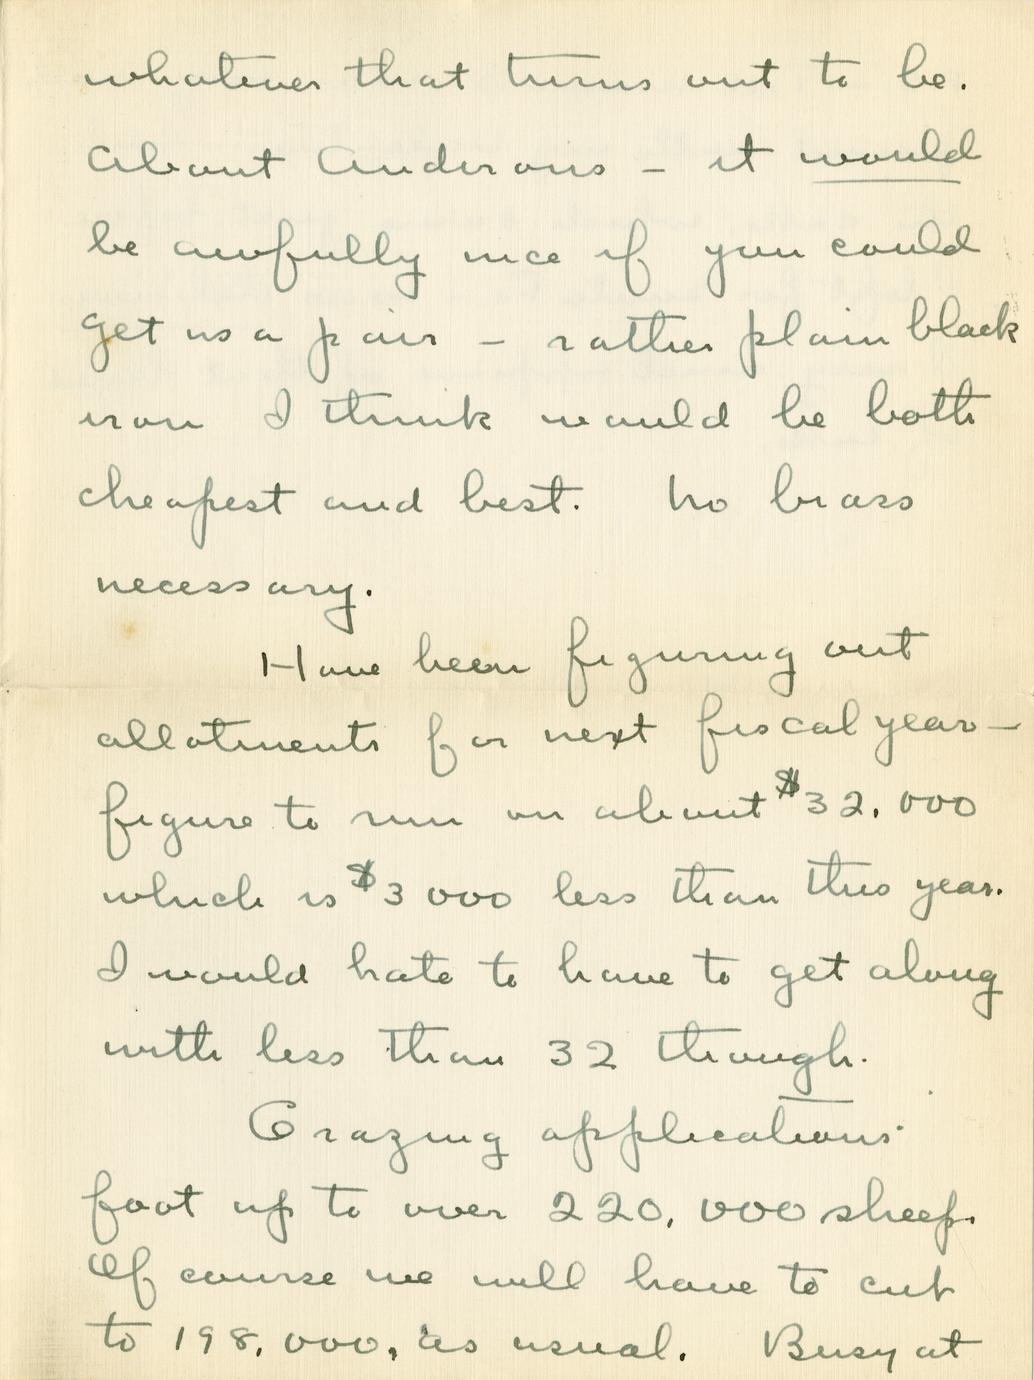 whatever that turns out to be.
About Andirons - it would
be awfully nice if you could
get us a pair - rather plain black
iron I think would be both
cheapest and best. No brass
necessary.
Have been figuring out
allotments for next fiscal year -
figure to run on about $32,000
which is $3000 less than this year.
I would hate to have to get along
with less than 32 though.
Grazing applications
foot up to over 220,000 sheep.
Of course we will have to cut
to 198,000, as usual. Busy at